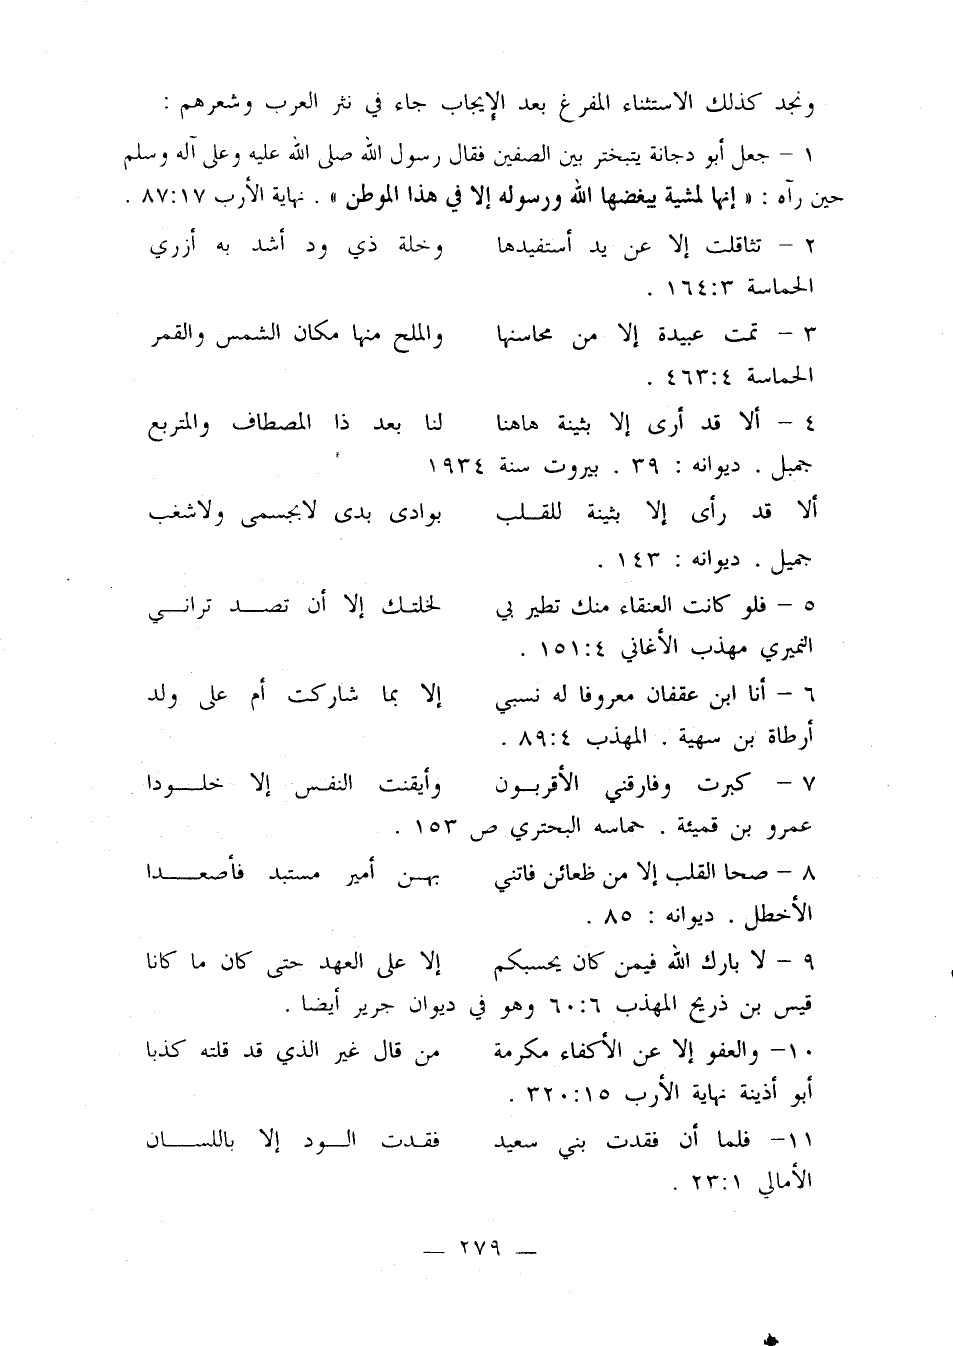 ونجد كذلك الاستثناء المفرغ بعد الإيجاب جاء في نثر العرب وشعرهم :
١ – جعل أبو دجانة يتبختر بين الصفين فقال رسول الله صلى الله عليه وعلى آله وسلم
حين رآه : « إنها لمشية يبغضها الله ورسوله إلا في هذا الموطن » . نهاية الأرب ٨٧:١٧ .
٢ – تثاقلت إلا عن يد أستفيدها وخلة ذي ود أشد به أزري
الحماسة ١٦٤:٣ .
٣ – تمت عبيدة إلا من محاسنها والملح منها مكان الشمس والقمر
الحماسة ٤٦٣:٤ .
٤ – ألا قد أرى إلا بثينة هاهنا لنا بعد ذا المصطاف والمتربع
جميل . ديوانه : ٣٩ . بيروت سنة ١٩٣٤
ألا قد رأى إلا بثينة للقلب بوادى بدى لابجسمى ولاشغب
جميل . ديوانه : ١٤٣ .
٥ – فلو كانت العنقاء منك تطير بي لخلتك إلا أن تصد تراني
النميري مهذب الأغاني ١٥١:٤ .
٦ – أنا ابن عقفان معروفا له نسبي إلا بما شاركت أم على ولد
أرطاة بن سهية . المهذب ٨٩:٤ .
٧ – كبرت وفارقني الأقربون وأيقنت النفس إلا خلودا
عمرو بن قميئة . حماسه البحتري ص ١٥٣ .
٨ – صحا القلب إلا من ظعائن فاتني بهن أمير مستبد فأصعدا
الأخطل . ديوانه : ٨٥ .
٩ – لا بارك الله فيمن كان يحسبكم إلا على العهد حتى كان ما كانا
قيس بن ذريح المهذب ٦٠:٦ وهو في ديوان جرير أيضا .
١٠– والعفو إلا عن الأكفاء مكرمة من قال غير الذي قد قلته كذبا
أبو أذينة نهاية الأرب ٣٢٠:١٥ .
١١– فلما أن فقدت بني سعيد فقدت الود إلا باللسان
الأمالي ٢٣:١ .
— ٢٧٩ —